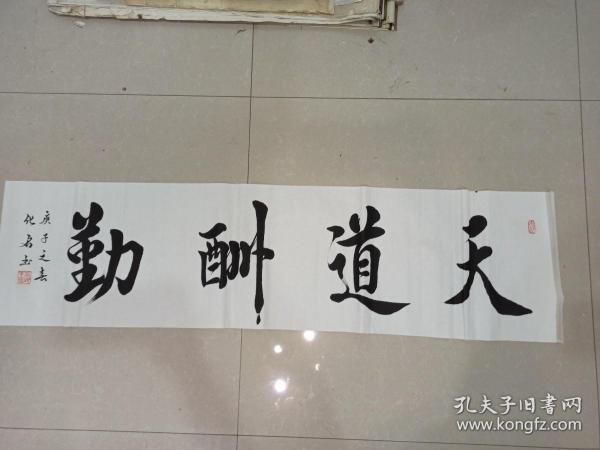 天道酬勤
庚子之春
化君书
孔夫子旧書网
www.kongfz.com